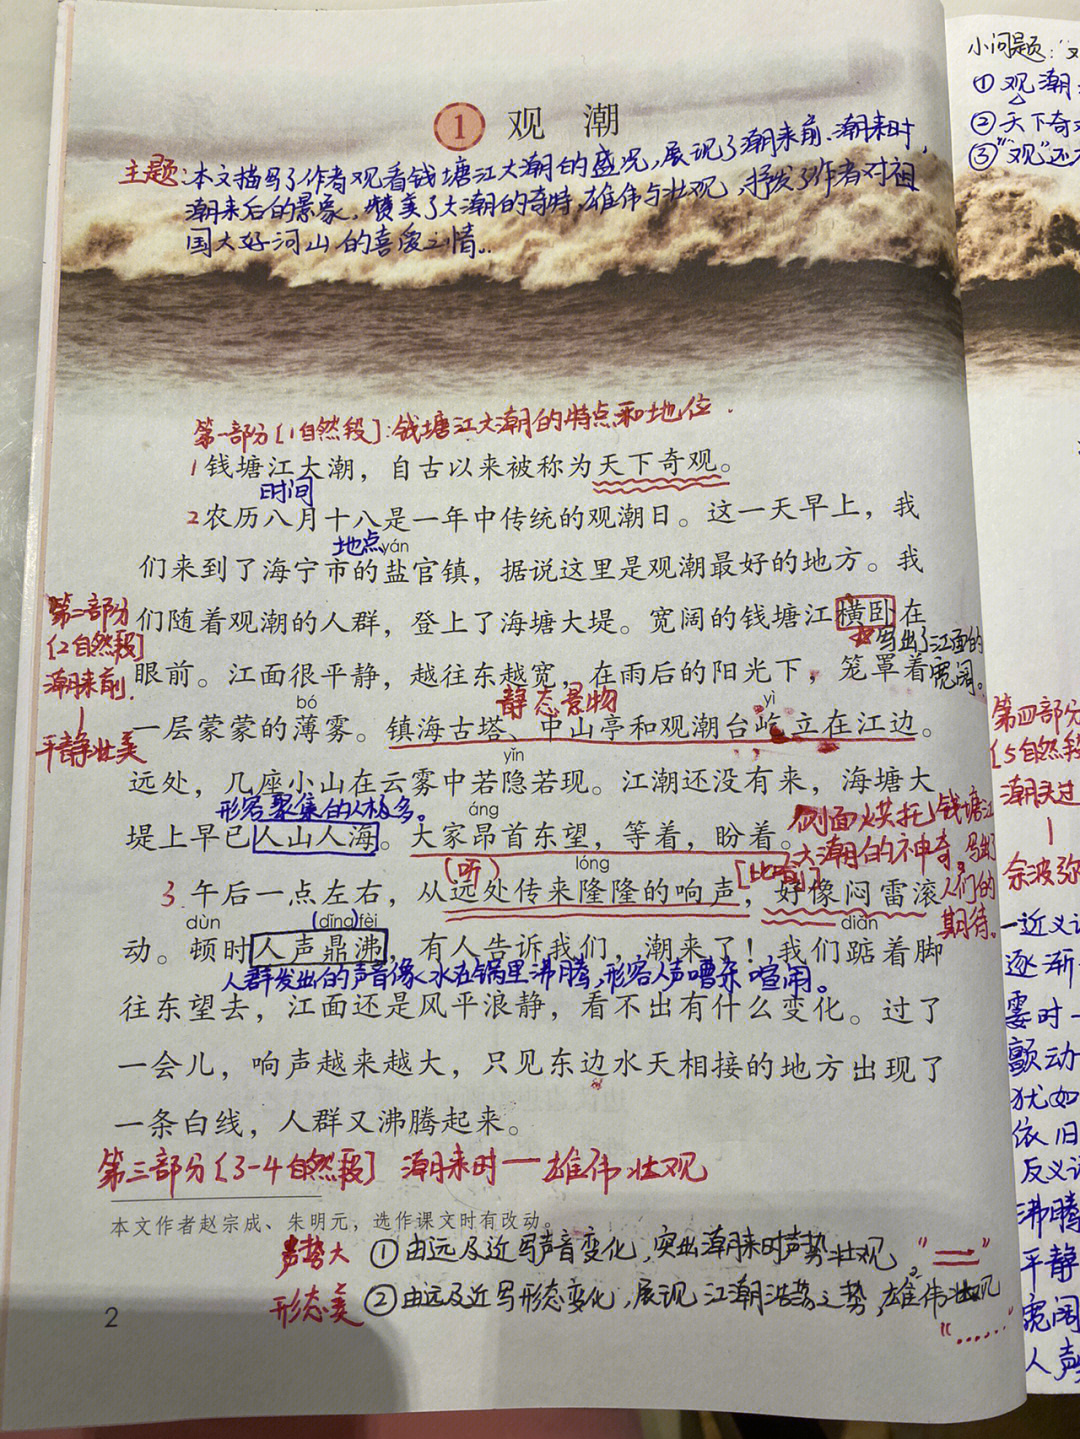 1 观潮
主题:本文描写了作者观看钱塘江大潮的盛况,展现了潮来前、潮来时,
潮来后的景象,赞美了大潮的奇特、雄伟与壮观,抒发了作者对祖
国大好河山的喜爱之情..
第一部分[1自然段]:钱塘江大潮的特点和地位.
1 钱塘江大潮,自古以来被称为天下奇观。
时间
2 农历八月十八是一年中传统的观潮日。这一天早上,我
地点 yán
们来到了海宁市的盐官镇,据说这里是观潮最好的地方。我
第二部分
[2自然段]
潮来前.
平静壮美
们随着观潮的人群,登上了海塘大堤。宽阔的钱塘江横卧在
写出了江面的
宽阔。
眼前。江面很平静,越往东越宽,在雨后的阳光下,笼罩着
bó 静态景物 yì
一层蒙蒙的薄雾。镇海古塔、中山亭和观潮台屹立在江边。
yǐn
远处,几座小山在云雾中若隐若现。江潮还没有来,海塘大
形容聚集的人极多。 áng
堤上早已人山人海。大家昂首东望,等着,盼着。
侧面烘托钱塘江
大潮的神奇。写出了
人们的
期待。
(听) lóng [比喻]
3 午后一点左右,从远处传来隆隆的响声,好像闷雷滚
dùn (dǐng)fèi diǎn
动。顿时人声鼎沸,有人告诉我们,潮来了!我们踮着脚
人群发出的声音像水在锅里沸腾,形容人声嘈杂喧闹。
往东望去,江面还是风平浪静,看不出有什么变化。过了
一会儿,响声越来越大,只见东边水天相接的地方出现了
一条白线,人群又沸腾起来。
第三部分[3-4自然段] 潮来时—雄伟壮观
本文作者赵宗成、朱明元,选作课文时有改动。
声势大 ①由远及近写声音变化,突出潮来时声势壮观
形态美 ②由远及近写形态变化,展现江潮浩荡之势,雄伟壮观
2
小问题:
①观潮
②天下奇
③"观"还
第四部分
[5自然段
潮头过
余波
近义
逐渐
霎时
颤动
犹如
依旧
反义
沸腾
平静
宽阔
人声